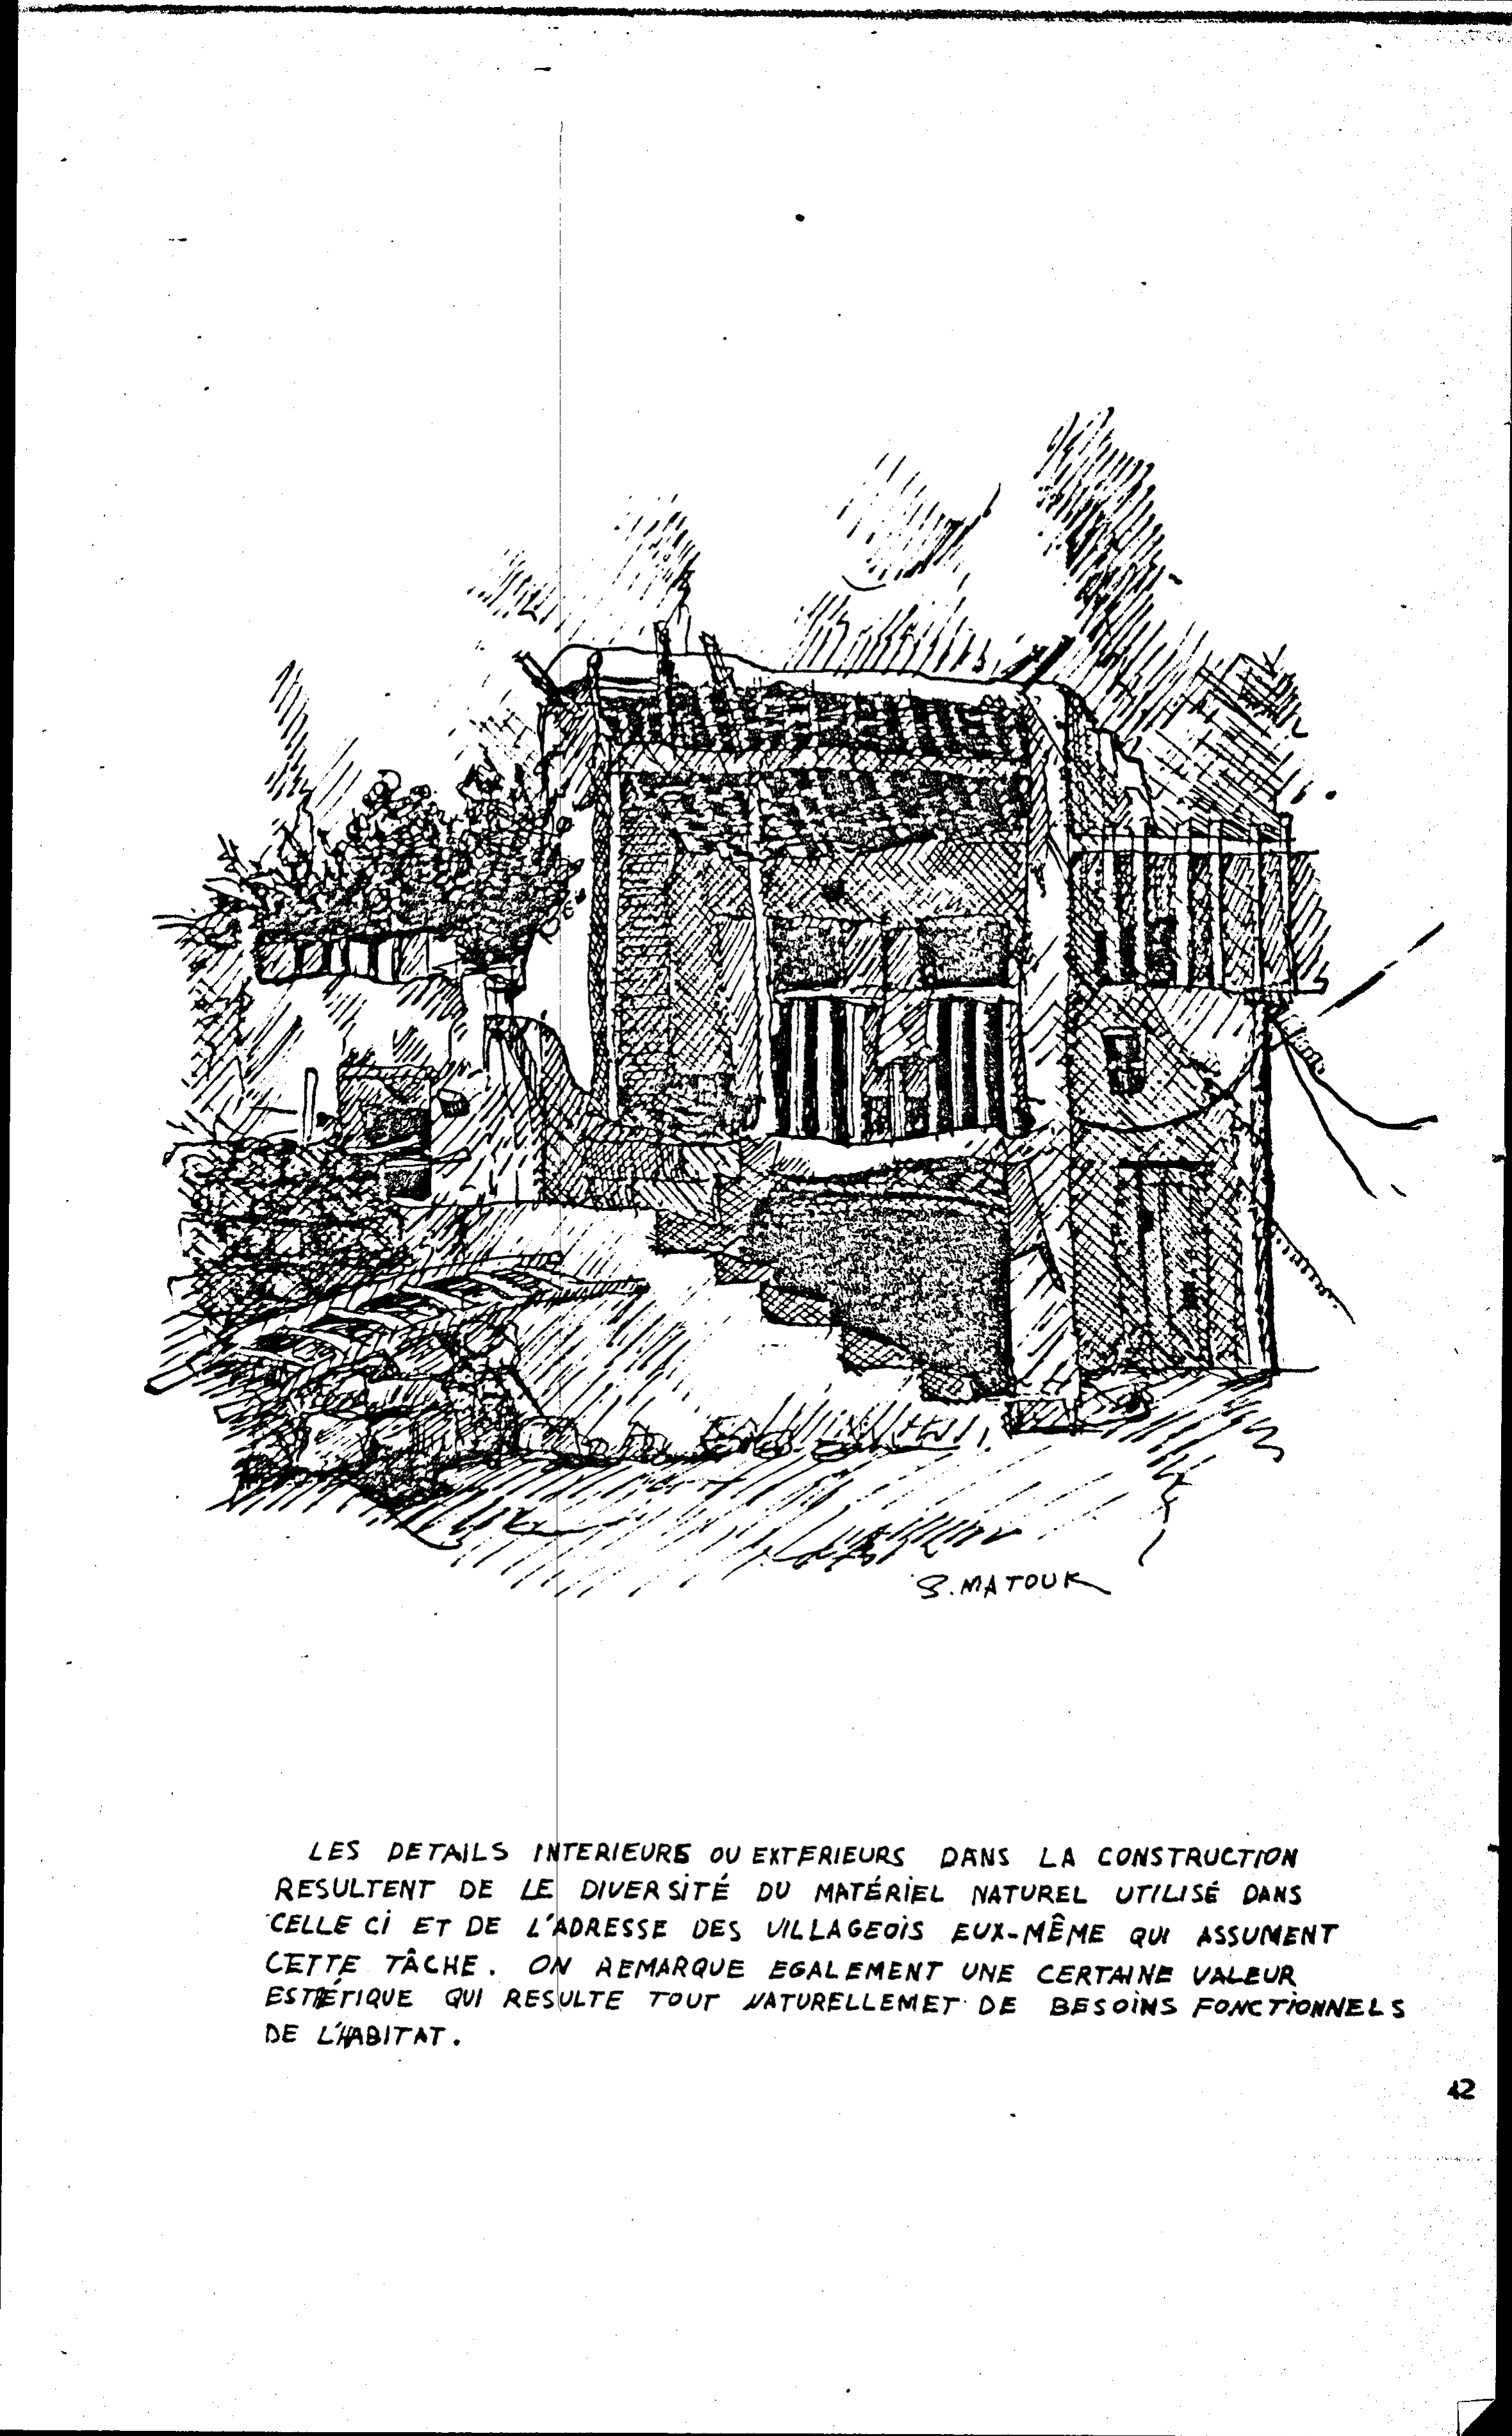 S. MATOUK
LES DETAILS INTERIEURS OU EXTERIEURS DANS LA CONSTRUCTION
RESULTENT DE LE DIVERSITÉ DU MATÉRIEL NATUREL UTILISÉ DANS
CELLE CI ET DE L'ADRESSE DES VILLAGEOIS EUX-MÊME QUI ASSUMENT
CETTE TÂCHE. ON REMARQUE EGALEMENT UNE CERTAINE VALEUR
ESTHÉTIQUE QUI RESULTE TOUT NATURELLEMET DE BESOINS FONCTIONNELS
DE L'HABITAT.
12